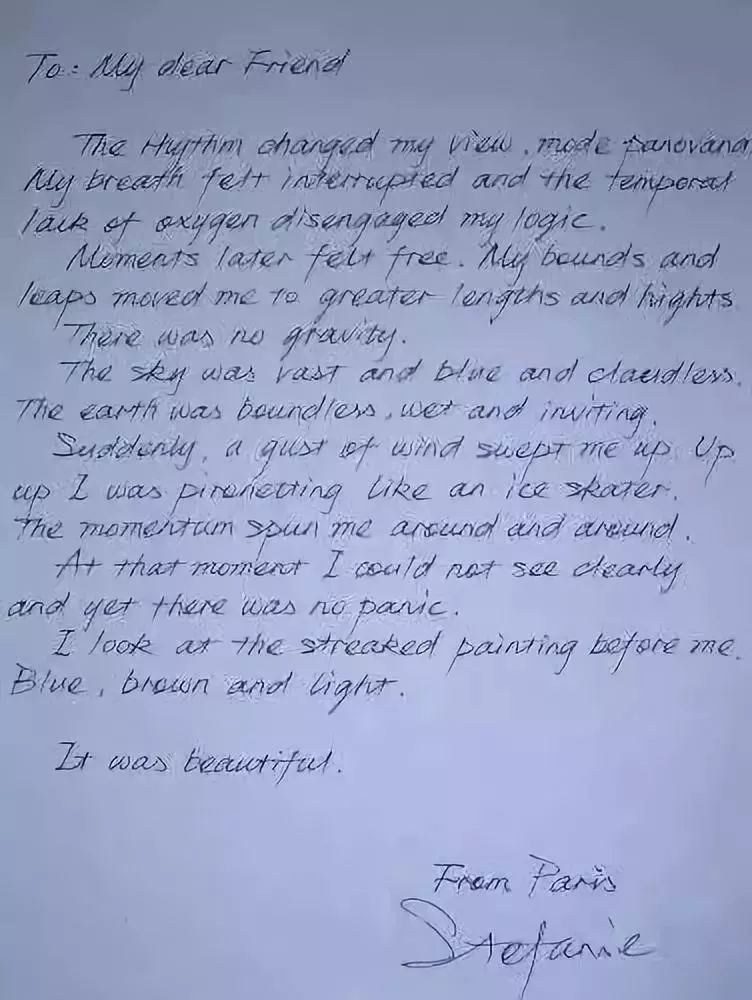 To: My dear Friend
The Hythm changed my view, mode panovana
My breath felt interrupted and the temporal
lack of oxygen disengaged my logic.
Moments later felt free. My bounds and
leaps moved me to greater lengths and hights.
There was no gravity.
The sky was vast and blue and claudless.
The earth was boundless, wet and inviting.
Suddenly, a gust of wind swept me up. Up
up I was pironetting like an ice skater.
The momentum spun me around and around.
At that moment I could not see clearly
and yet there was no panic.
I look at the streaked painting before me.
Blue, brown and light.
It was beautiful.
From Paris
Stefanie